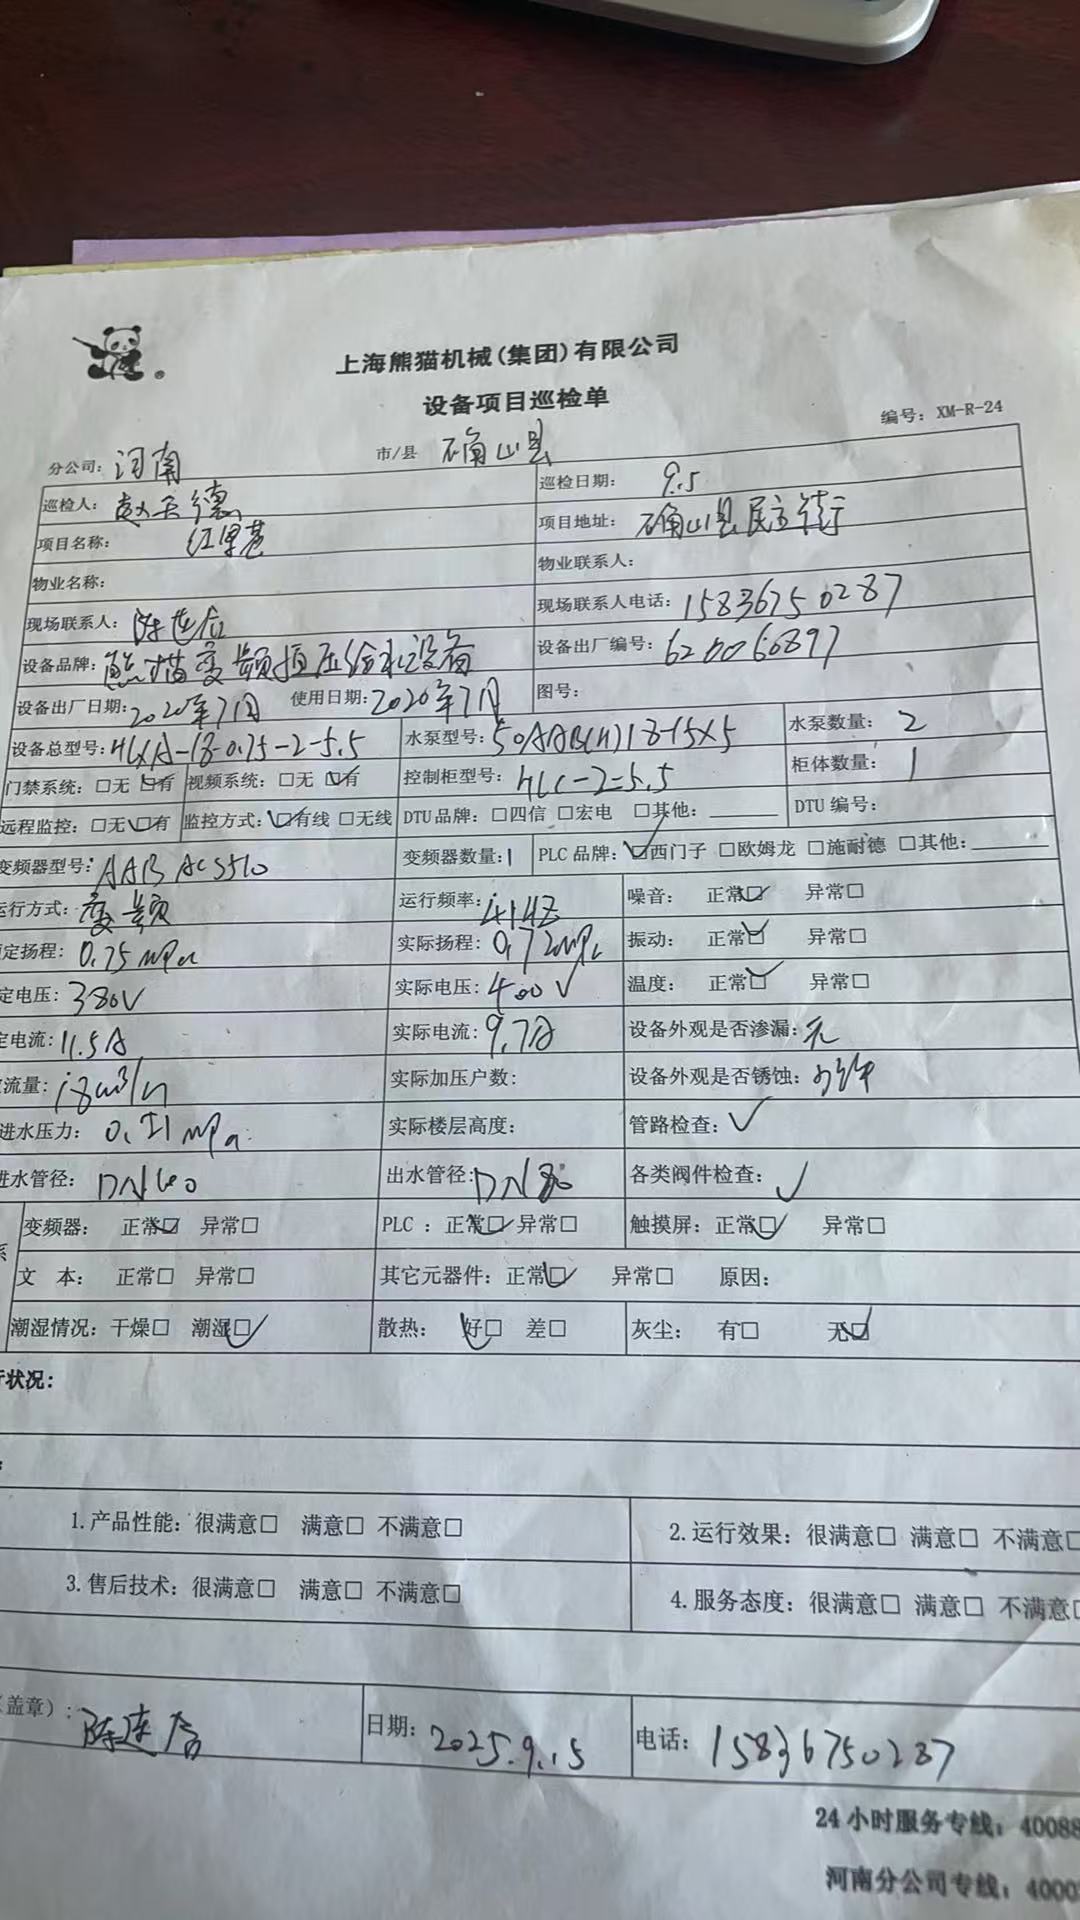 上海熊猫机械(集团)有限公司
设备项目巡检单
编号：XM-R-24
分公司：河南 市/县 确山县
巡检人：赵天德 巡检日期：9.5
项目名称： 项目地址：确山县民主街
物业名称： 物业联系人：
现场联系人：陈连 现场联系人电话：15836750287
设备品牌：熊猫变频恒压给水设备 设备出厂编号：620060897
设备出厂日期：2020年7月 使用日期：2020年7月 图号：
设备总型号：HLXA-18-0.75-2-5.5 水泵型号：50AAB(H)18-15X5 水泵数量：2
门禁系统：□无 ☑有 视频系统：□无 ☑有 控制柜型号：HLC-2=5.5 柜体数量：1
远程监控：□无 ☑有 监控方式：☑有线 □无线 DTU品牌：□四信 □宏电 □其他：______ DTU编号：
变频器型号：AAB ACS510 变频器数量：1 PLC品牌：☑西门子 □欧姆龙 □施耐德 □其他：______
运行方式：变频 运行频率：41HZ 噪音： 正常☑ 异常□
定扬程：0.75mpa 实际扬程：0.72mpa 振动： 正常☑ 异常□
定电压：380V 实际电压：400V 温度： 正常☑ 异常□
定电流：11.5A 实际电流：9.7A 设备外观是否渗漏：无
流量：18m³/h 实际加压户数： 设备外观是否锈蚀：
进水压力：0.21mpa 实际楼层高度： 管路检查：✓
进水管径：DN 出水管径：DN80 各类阀件检查：✓
变频器： 正常☑ 异常□ PLC： 正常☑ 异常□ 触摸屏：正常☑ 异常□
系
文 本： 正常□ 异常□ 其它元器件：正常☑ 异常□ 原因：
潮湿情况：干燥□ 潮湿☑ 散热： 好☑ 差□ 灰尘： 有□ 无☑
状况：
1.产品性能：很满意□ 满意□ 不满意□ 2.运行效果：很满意□ 满意□ 不满意□
3.售后技术：很满意□ 满意□ 不满意□ 4.服务态度：很满意□ 满意□ 不满意□
（盖章）：陈连 日期：2025.9.15 电话：15836750287
24小时服务专线：40088
河南分公司专线：4000